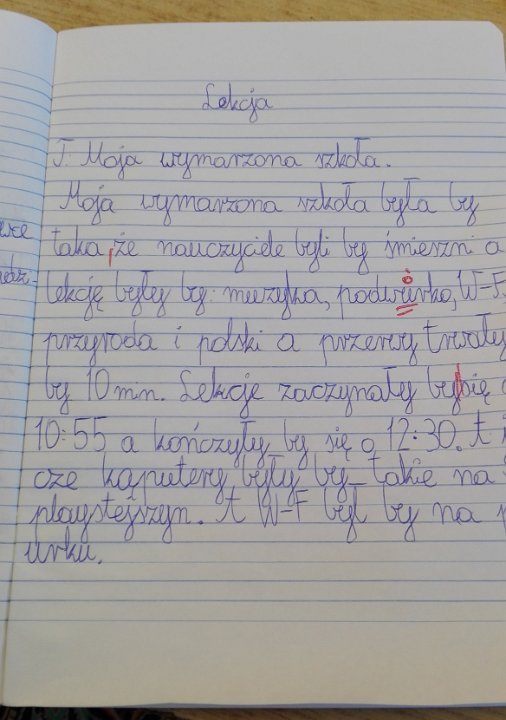 Lekcja
T: Moja wymarzona szkoła.
Moja wymarzona szkoła była by
taka, że nauczyciele byli by śmieszni a
lekcję były by: muzyka, podwurko, W-F,
przyroda i polski a przerwy trwały
by 10 min. Lekcje zaczynały by się
10:55 a kończyły by się o 12:30. A
cze kąputery były by takie na
playstejszyn. A W-F był by na
urku.